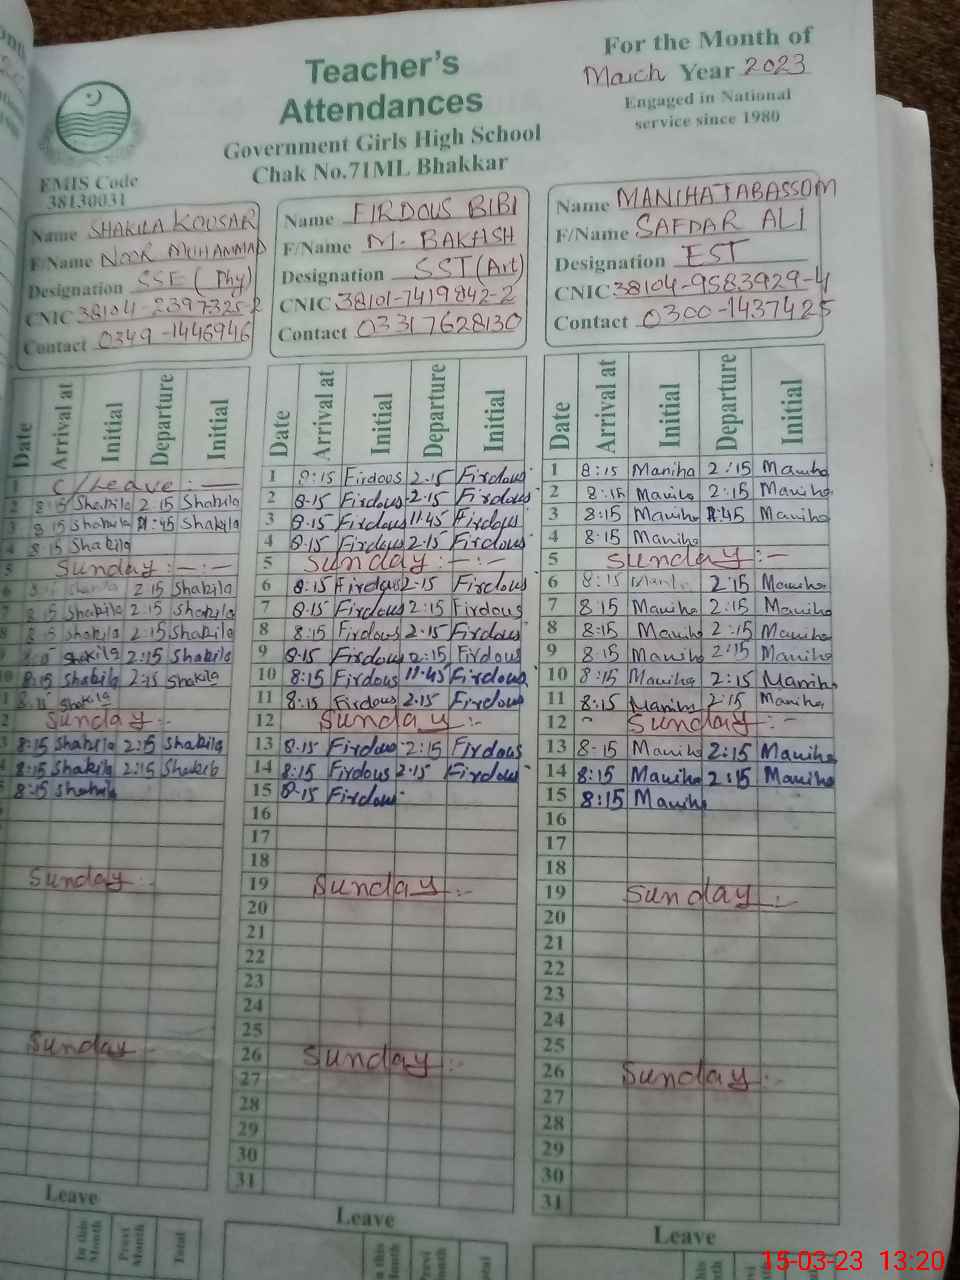 Teacher's
Attendances
Government Girls High School
Chak No.71ML Bhakkar
For the Month of
March Year 2023
Engaged in National
service since 1980
EMIS Code
38130031
Name SHAKILA KOUSAR
F/Name NOOR MUHAMMAD
Designation SSE (Phy)
CNIC 38104-2397325-2
Contact 0349-1446946
Name FIRDOUS BIBI
F/Name M. BAKASH
Designation SST (Art)
CNIC 38101-7419842-2
Contact 03317628130
Name MANIHA TABASSOM
F/Name SAFDAR ALI
Designation EST
CNIC 38104-9583929-4
Contact 0300-1437425
Date Arrival at Initial Departure Initial
1 C/Leave :—
2 8:15 Shakila 2:15 Shakila
3 8:15 Shakila 11:45 Shakila
4 8:15 Shakila
5 Sunday :—:—
6 2:15 Shakila
7 8:15 Shakila 2:15 Shakila
8 8:15 Shakila 2:15 Shakila
9 Shakila 2:15 Shakila
10 8:15 Shakila 2:15 Shakila
11 8:15 Shakila
12 Sunday :-
13 8:15 Shakila 2:15 Shakila
14 8:15 Shakila 2:15 Shakila
15 8:15 Shakila
Sunday :-
Sunday -
Leave
In this Month Previ Month Total
Date Arrival at Initial Departure Initial
1 8:15 Firdous 2.15 Firdous
2 8.15 Firdous 2.15 Firdous
3 8.15 Firdous 11.45 Firdous
4 8.15 Firdous 2.15 Firdous
5 Sunday :—:—
6 8:15 Firdous 2.15 Firdous
7 8.15 Firdous 2:15 Firdous
8 8:15 Firdous 2.15 Firdous
9 8.15 Firdous 2:15 Firdous
10 8:15 Firdous 11.45 Firdous
11 8:15 Firdous 2.15 Firdous
12 Sunday :-
13 8.15 Firdous 2:15 Firdous
14 8:15 Firdous 2.15 Firdous
15 8.15 Firdous
16
17
18
19 Sunday :-
20
21
22
23
24
25
26 Sunday :-
27
28
29
30
31
Leave
Date Arrival at Initial Departure Initial
1 8:15 Maniha 2:15 Maniha
2 8:15 Maniha 2:15 Maniha
3 8:15 Maniha 11:45 Maniha
4 8:15 Maniha
5 Sunday :-
6 8:15 Maniha 2:15 Maniha
7 8:15 Maniha 2:15 Maniha
8 8:15 Maniha 2:15 Maniha
9 8:15 Maniha 2:15 Maniha
10 8:15 Maniha 2:15 Maniha
11 8:15 Maniha 2:15 Maniha
12 Sunday :-
13 8:15 Maniha 2:15 Maniha
14 8:15 Maniha 2:15 Maniha
15 8:15 Maniha
16
17
18
19 Sunday :-
20
21
22
23
24
25
26 Sunday :-
27
28
29
30
31
Leave
15-03-23 13:20